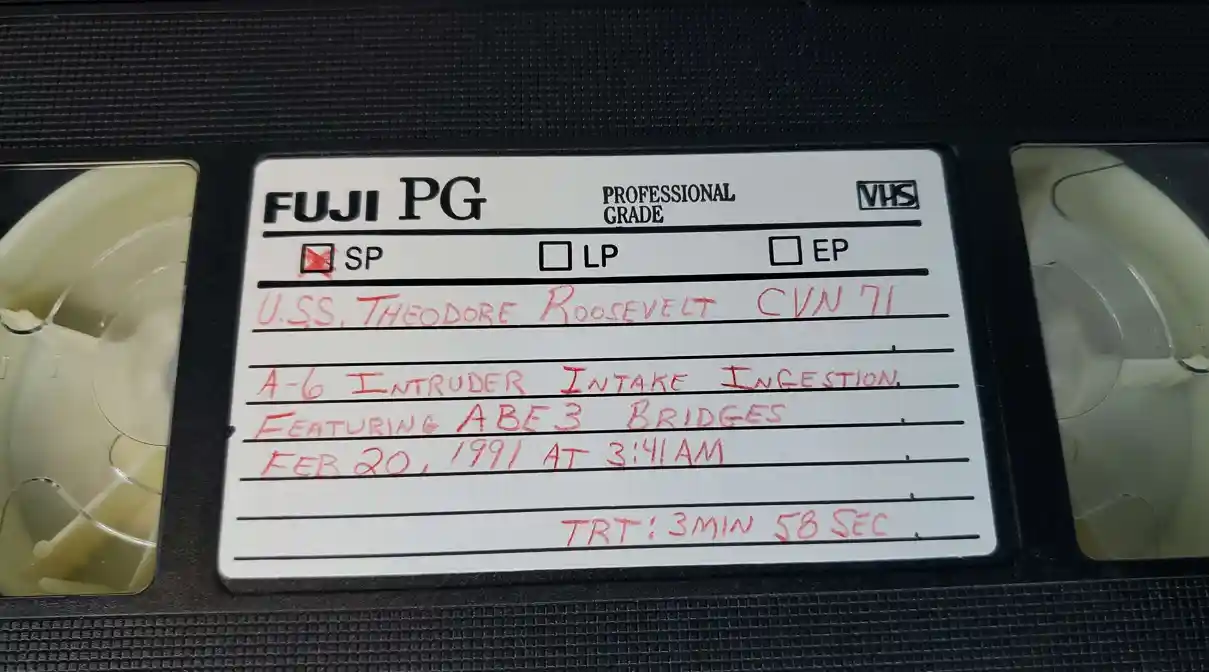 FUJI PG PROFESSIONAL GRADE VHS
SP LP EP
U.S.S. THEODORE ROOSEVELT CVN 71
A-6 INTRUDER INTAKE INGESTION
FEATURING ABE3 BRIDGES
FEB 20, 1991 AT 3:41AM
TRT: 3MIN 58SEC